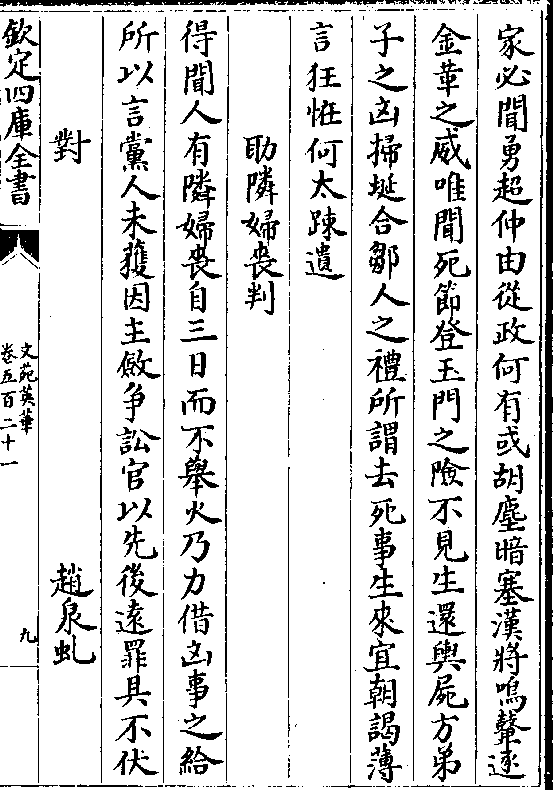 家必聞勇超仲由從政何有或胡塵暗塞漢將鳴鼙逐
金革之威唯聞死節登玉門之險不見生還輿屍方弟
子之凶掃埏合鄒人之禮所謂去死事生來宜朝謁薄
言狂恠何太踈遺
助隣婦喪判
得聞人有隣婦喪自三日而不舉火乃力借凶事之給
所以言黨人未獲因主儆爭訟官以先後遠罪具不伏
對
趙泉虬
欽定四庫全書
文苑英華
卷五百二十一
九